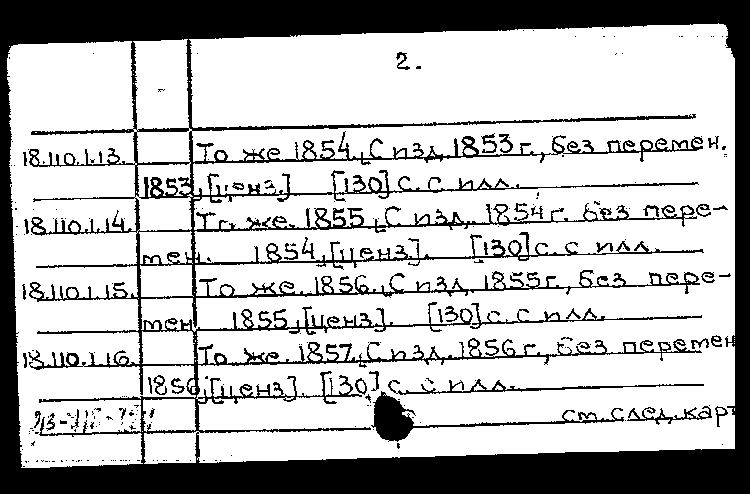 2.
18.110.1.13. То же 1854. [С изд. 1853 г., без перемен.
1853, [ценз.] [130] с. с илл.
18.110.1.14. То же. 1855. [С изд. 1854 г. без пере-
мен. 1854, [ценз]. [130] с. с илл.
18.110.1.15. То же. 1856. [С изд. 1855 г., без пере-
мен 1855, [ценз]. [130] с. с илл.
18.110.1.16. То же. 1857. [С изд. 1856 г., без перемен
1856, [ценз]. [130] с. с илл.
см. след. карт